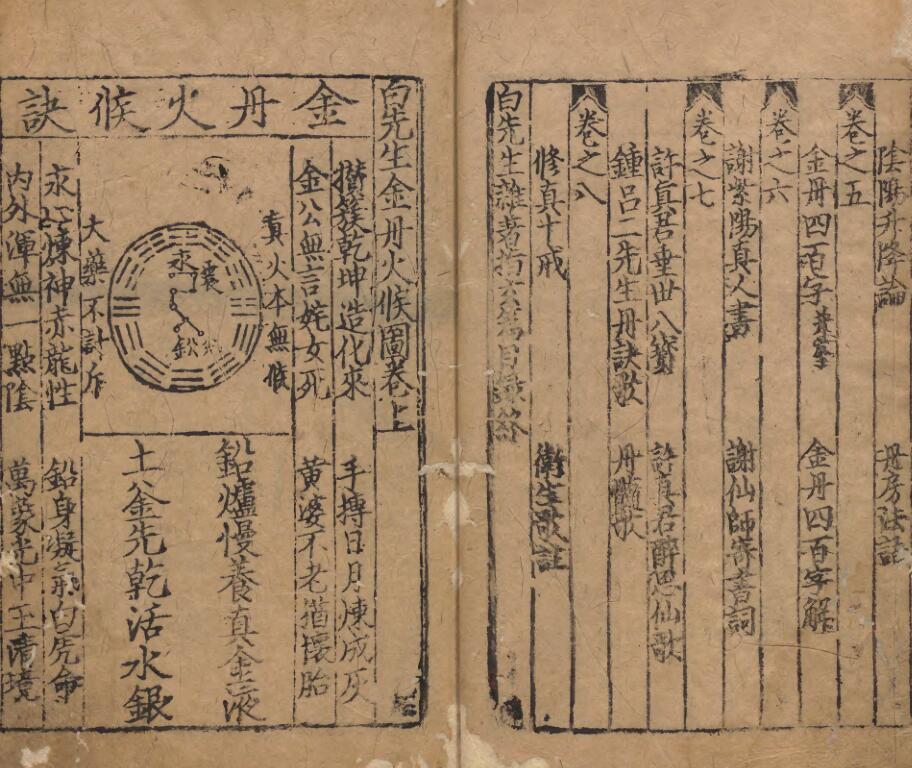 陰陽升降論　丹房法語
卷之五
金丹四百字并序　金丹四百字解
卷之六
謝紫陽真人書　謝仙師寄書詞
卷之七
許真君垂世八寶　許真君醉思仙歌
鍾呂二先生丹訣歌　丹髓歌
卷之八
修真十戒　衛生歌註
白先生雜著指玄篇目錄終
白先生金丹火候圖卷上
金丹火候訣
攅簇乾坤造化來　手摶日月煉成灰
金公無言姹女死　黄婆不老猶懷胎
真火本無候
汞
鈆
大藥不計斤
鉛爐慢養真金液
土釜先乾活水銀
汞心煉神赤龍性　鉛身凝氣白虎命
内外渾無一點陰　萬象光中玉清境